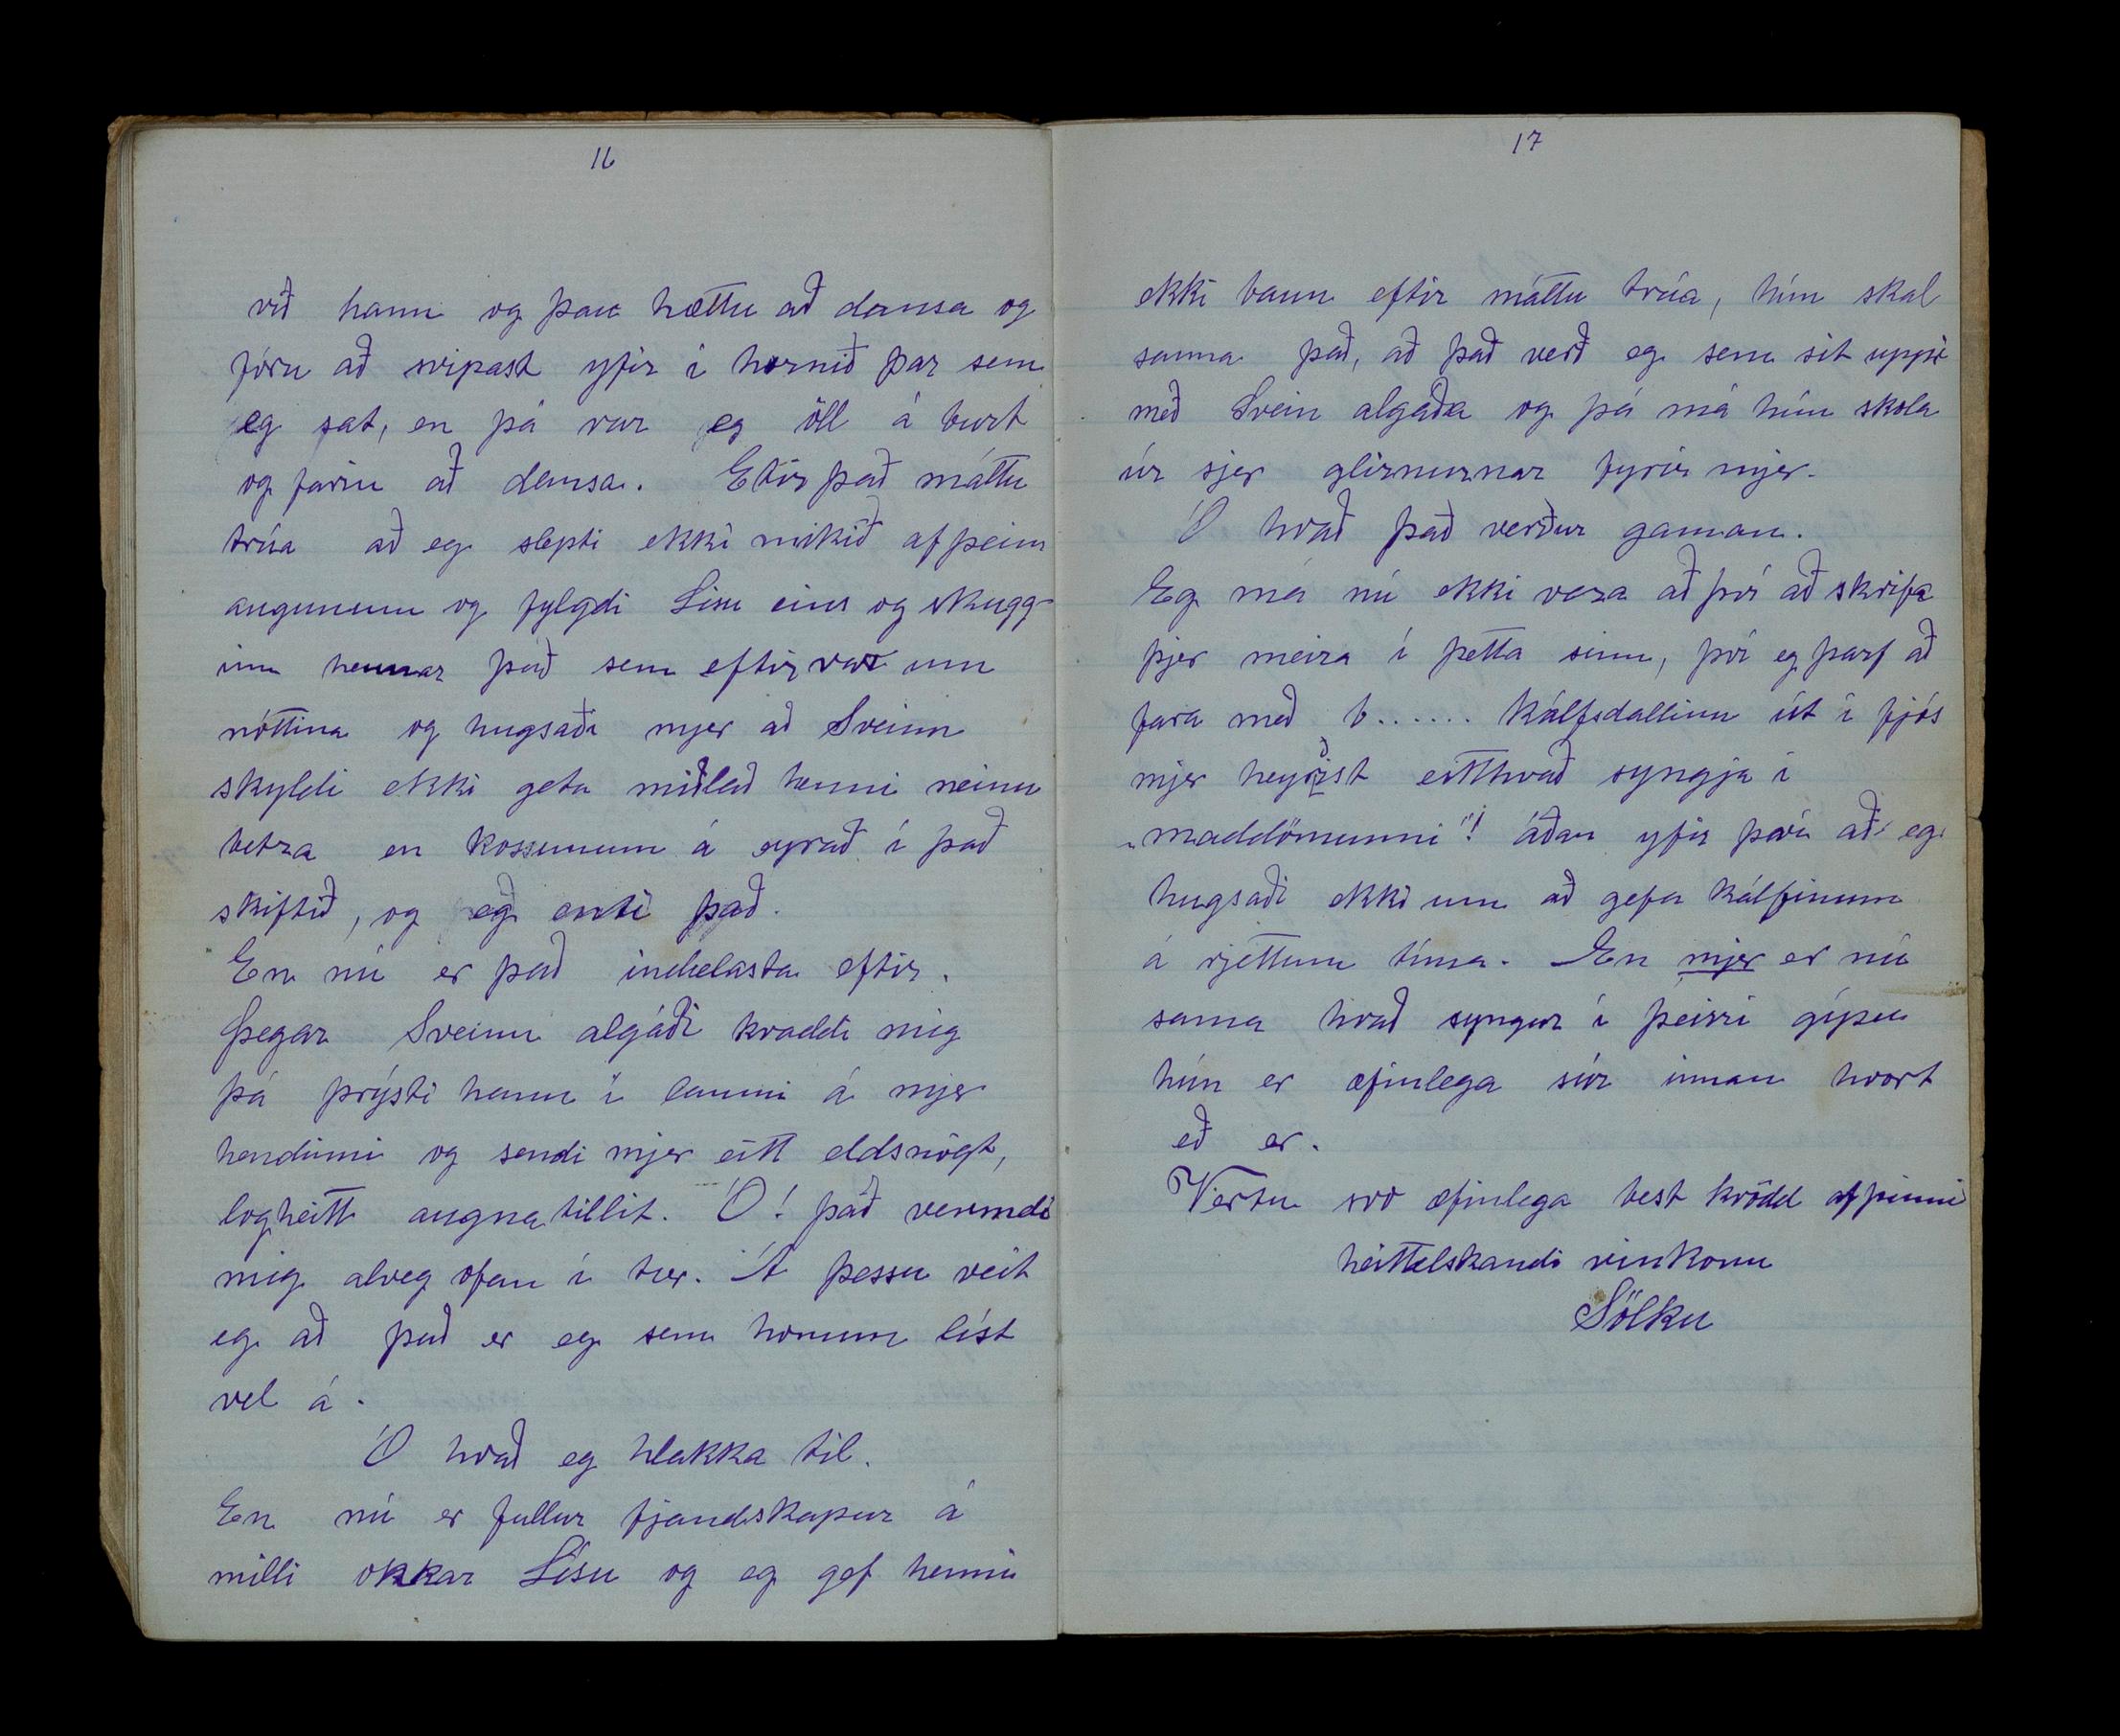 16
við hann og þau hættu að dansa og
fóru að svipast yfir í hornið þar sem
eg sat, en þá var eg öll á burt
og farin að dansa. Ettir það máttu
trúa að eg slepti ekki mikið af þeim
augunum og fylgdi Lísu eins og skugg-
inn hennar það sem eftir var um
nóttina og hugsaði mjer að Sveinn
skyldi ekki geta miðlað henni neinu
betra en kossunum á eyrað í það
skiftið, og eg enti það.
En nú er það indælasta eftir.
Þegar Sveinn algáði kvaddi mig
þá þrýsti hann í laumi á mjer
hendinni og sendi mjer eitt eldsnögt,
logheitt augnatillit. Ó! það vermdi
mig alveg ofan í tær. Á þessu veit
eg að það er eg sem honum líst
vel á.
Ó hvað eg hlakka til.
En nú er fullur fjandskapur á
milli okkar Lísu og eg gef henni
17
ekki baun eftir máttu trúa, hún skal
sanna það, að það verð eg sem sit uppi
með Svein algaða og þá má hún skola
úr sjer glirnurnar fyrir mjer.
Ó hvað það verður gaman.
Eg má nú ekki vera að því að skrifa
þjer meira í þetta sinn, því eg þarf að
fara með b...... kálfsdallinn út í fjós
mjer heyrðist eitthvað syngja í
„maddömunni"! áðan yfir því að eg
hugsaði ekki um að gefa kálfinum
á rjettum tíma. En mjer er nú
sama hvað syngur í þeirri gípu
hún er æfinlega súr innan hvort
eð er.
Vertu svo æfinlega best kvödd af þinni
heittelskandi vinkonu
Sölku